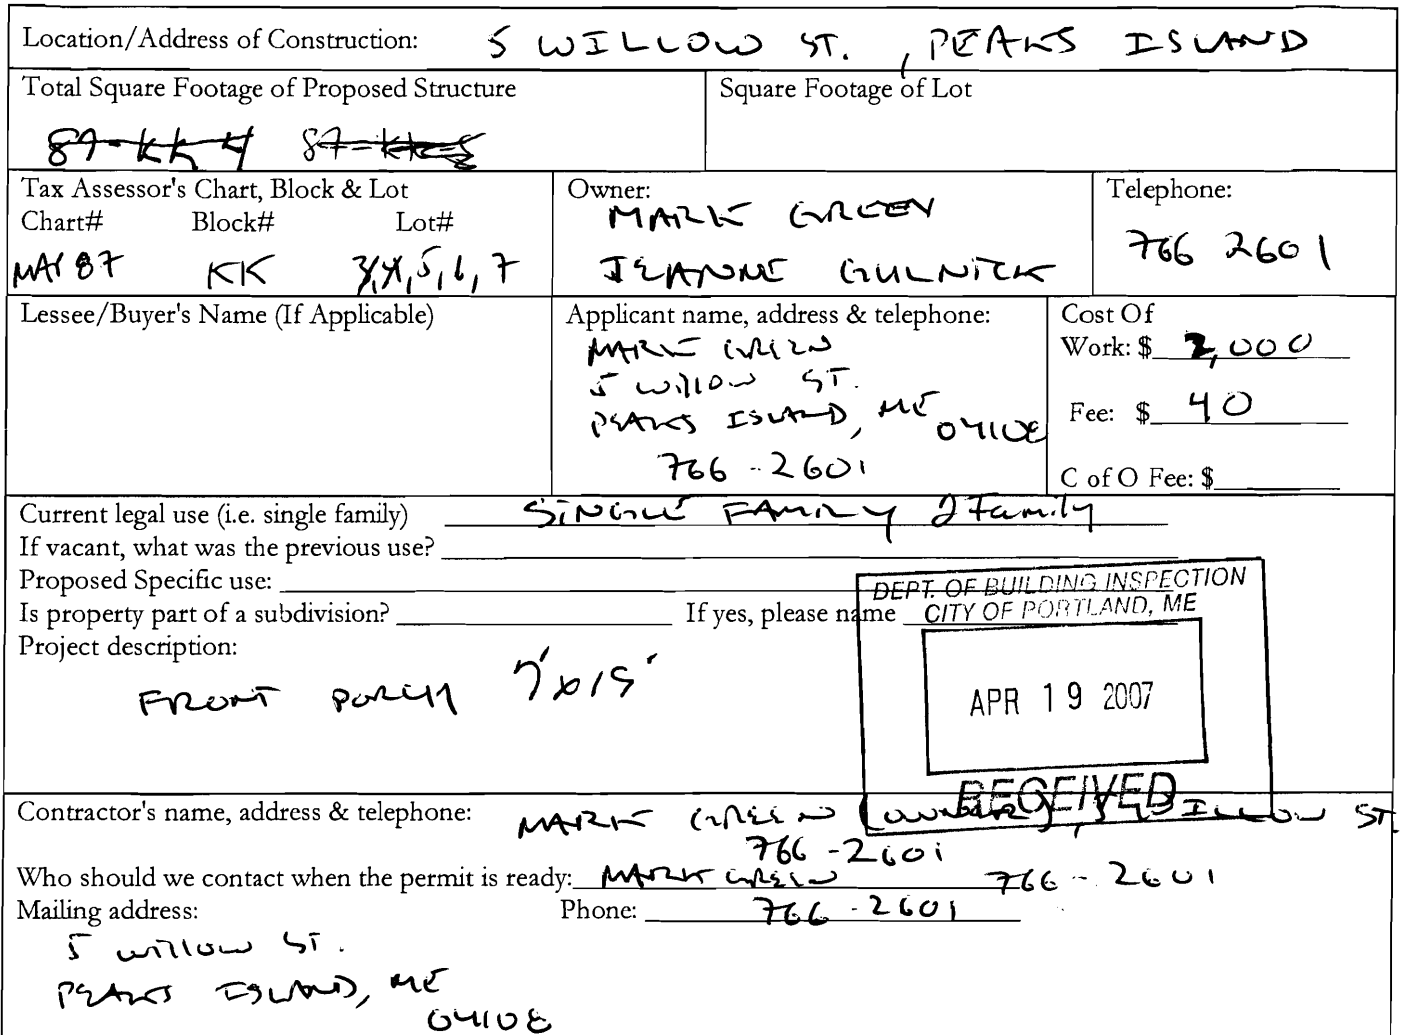 Location/Address of Construction: 5 WILLOW ST., PEAKS ISLAND
Total Square Footage of Proposed Structure
Square Footage of Lot
87-KK 4 87-KK-5
Tax Assessor's Chart, Block & Lot
Chart# Block# Lot#
MAP 87 KK 3,4,5,6,7
Owner:
MARK GREEN
JEANNE GULNICK
Telephone:
766 2601
Lessee/Buyer's Name (If Applicable)
Applicant name, address & telephone:
MARK GREEN
5 WILLOW ST.
PEAKS ISLAND, ME
04108
766-2601
Cost Of
Work: $ 2,000
Fee: $ 40
C of O Fee: $
Current legal use (i.e. single family) SINGLE FAMILY 2 Family
If vacant, what was the previous use?
Proposed Specific use:
Is property part of a subdivision? If yes, please name
Project description:
FRONT PORCH 7'x15'
DEPT. OF BUILDING INSPECTION
CITY OF PORTLAND, ME
APR 19 2007
RECEIVED
Contractor's name, address & telephone: MARK GREEN (OWNER), 5 WILLOW ST.
766-2601
Who should we contact when the permit is ready: MARK GREEN 766-2601
Mailing address: Phone: 766-2601
5 WILLOW ST.
PEAKS ISLAND, ME
04108